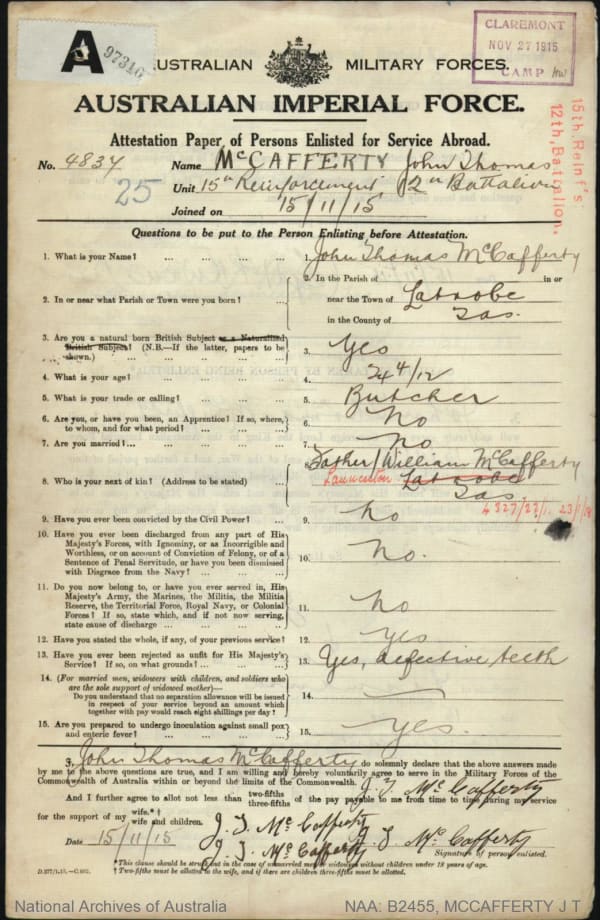 A 97316
AUSTRALIAN MILITARY FORCES.
CLAREMONT
NOV 27 1915
CAMP
AUSTRALIAN IMPERIAL FORCE.
15th Reinf's
12th, Battalion.
Attestation Paper of Persons Enlisted for Service Abroad.
No. 4834 Name McCAFFERTY John Thomas
25
Unit 15th Reinforcement, 12th Battalion
Joined on 15/11/15
Questions to be put to the Person Enlisting before Attestation.
1. What is your Name? ... ... ... ... 1. John Thomas McCafferty
2. In or near what Parish or Town were you born? ... 2. In the Parish of in or
near the Town of Latrobe
in the County of Tas.
3. Are you a natural born British Subject or a Naturalised
British Subject? (N.B.—If the latter, papers to be
shown.) ... ... ... ... 3. Yes
4. What is your age? ... ... ... ... 4. 24 4/12
5. What is your trade or calling? ... ... ... 5. Butcher
6. Are you, or have you been, an Apprentice? If so, where,
to whom, and for what period? ... ... ... 6. No
7. Are you married?... ... ... ... 7. No
8. Who is your next of kin? (Address to be stated) ... 8. Father / William McCafferty
Launceston Latrobe
Tas
9. Have you ever been convicted by the Civil Power? ... 9. No
10. Have you ever been discharged from any part of His
Majesty's Forces, with Ignominy, or as Incorrigible and
Worthless, or on account of Conviction of Felony, or of a
Sentence of Penal Servitude, or have you been dismissed
with Disgrace from the Navy? ... ... ... 10. No.
11. Do you now belong to, or have you ever served in, His
Majesty's Army, the Marines, the Militia, the Militia
Reserve, the Territorial Force, Royal Navy, or Colonial
Forces? If so, state which, and if not now serving,
state cause of discharge ... ... ... 11. No
12. Have you stated the whole, if any, of your previous service? 12. Yes
13. Have you ever been rejected as unfit for His Majesty's
Service? If so, on what grounds? ... ... ... 13. Yes, defective teeth
14. (For married men, widowers with children, and soldiers who
are the sole support of widowed mother)—
Do you understand that no separation allowance will be issued
in respect of your service beyond an amount which
together with pay would reach eight shillings per day? 14.
15. Are you prepared to undergo inoculation against small pox
and enteric fever? ... ... ... ... 15. Yes.
I, John Thomas McCafferty do solemnly declare that the above answers made
by me to the above questions are true, and I am willing and hereby voluntarily agree to serve in the Military Forces of the
Commonwealth of Australia within or beyond the limits of the Commonwealth.
And I further agree to allot not less than two-fifths three-fifths of the pay payable to me from time to time during my service
J. T. McCafferty
for the support of my wife.*† wife and children.
J. T. McCafferty
Date 15/11/15 J. T. McCafferty J. T. McCafferty
Signature of person enlisted.
*This clause should be struck out in the case of unmarried men or widowers without children under 18 years of age.
† Two-fifths must be allotted to the wife, and if there are children three-fifths must be allotted.
National Archives of Australia NAA: B2455, MCCAFFERTY J T